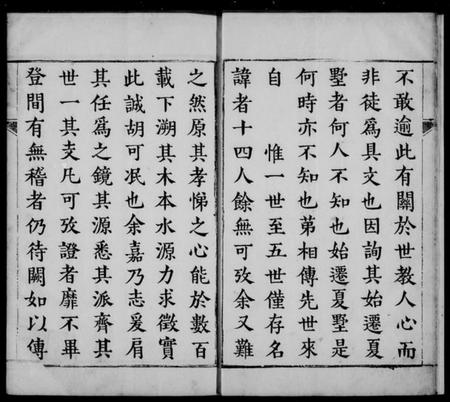 不敢逾此有關於世教人心而
非徒爲具文也因詢其始遷夏
墅者何人不知也始遷夏墅是
何時亦不知也第相傳先世來
自　惟一世至五世僅存名
諱者十四人餘無可攷余又難
之然原其孝悌之心能於數百
載下溯其木本水源力求徵實
此誠胡可冺也余嘉乃志爰肩
其任爲之鏡其源悉其派齊其
世一其支凡可攷證者靡不畢
登間有無稽者仍待闕如以傳